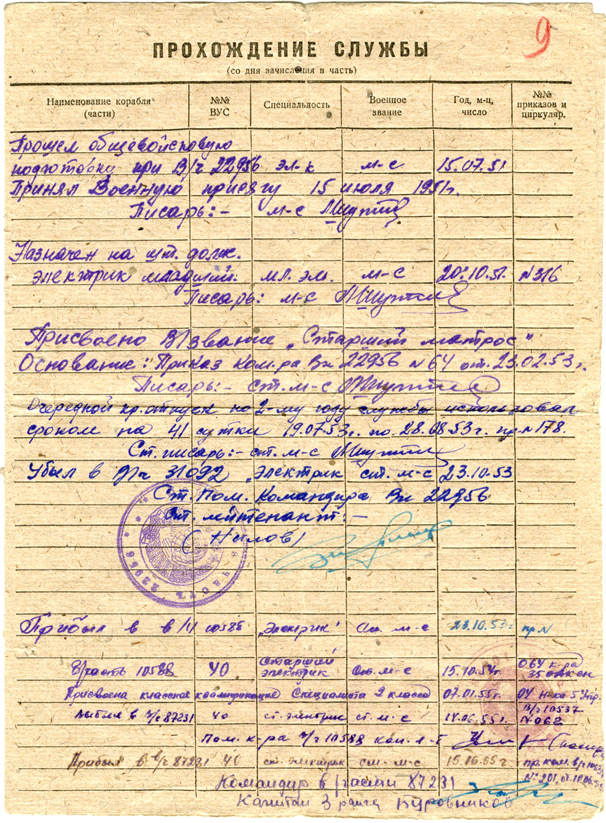 9
ПРОХОЖДЕНИЕ СЛУЖБЫ
(со дня зачисления в часть)
Наименование корабля (части) №№ ВУС Специальность Военное звание Год, м-ц, число №№ приказов и циркуляр.
Прошел общевойсковую
подготовку при В/ч 22956 эл-к м-с 15.07.51
Принял Военную присягу 15 июля 1951г.
Писарь:- м-с
Назначен на шт. долж.
электрик младший. мл. эл. м-с 20.10.51. №316
Писарь: м-с
Присвоено В/звание „Старший матрос"
Основание: Приказ ком-ра Вч 22956 №64 от. 23.02.53г.
Писарь:- ст. м-с
Очередной кр. отпуск по 2-му году службы использовал
сроком на 41 сутки 19.07.53г. по 28.08.53г. пр-№178.
Ст. писарь:- ст. м-с
Убыл в В/ч 31092 „Электрик ст. м-с 23.10.53
Ст. Пом. Командира Вч 22956
Ст. лейтенант:-
(Нилов)
22956
Прибыл в в/ч 10588 „Электрик" Ст. м-с 23.10.53г пр №
В/часть 10588 40 Старший электрик Ст. м-с 15.10.54г 064 к-ра
Присвоена классная квалификация Специалиста 2 класса 07.01.55г. 04
В/ч 10537
Убыл в В/ч 87231 40 ст. электрик ст. м-с 14.06.55г. №062
Пом. к-ра В/ч 10588 кап. л-т
Прибыл в В/ч 87231 40 ст. электрик ст. м-с 15.06.55г.
Командир в/части 87231
Капитан 3 ранга Буровников